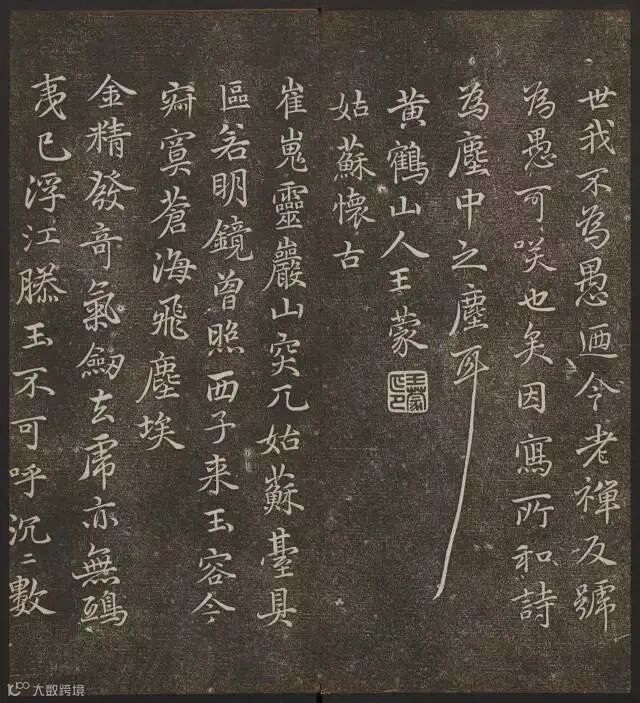 世我不為愚迺今老禪反號
為愚可咲也矣因寫所和詩
為塵中之塵耳
黄鶴山人王蒙
王蒙
姑蘇懷古
崔嵬靈巖山突兀姑蘇臺具
區若明鏡曾照西子来玉容今
寂寞蒼海飛塵埃
金精發奇氣劒去虎亦無鴟
夷已浮江滕玉不可呼沉〻數
大数跨境